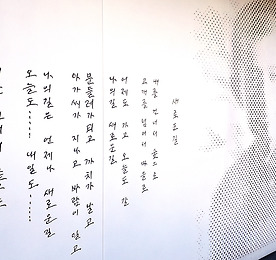 새로운 길
내를 건너서 숲으로
고개를 넘어서 마을로
어제도 가고 오늘도 갈
나의 길 새로운 길
문들레가 피고 까치가 날고
아가씨가 지나고 바람이 일고
나의 길은 언제나 새로운 길
오늘도...... 내일도......